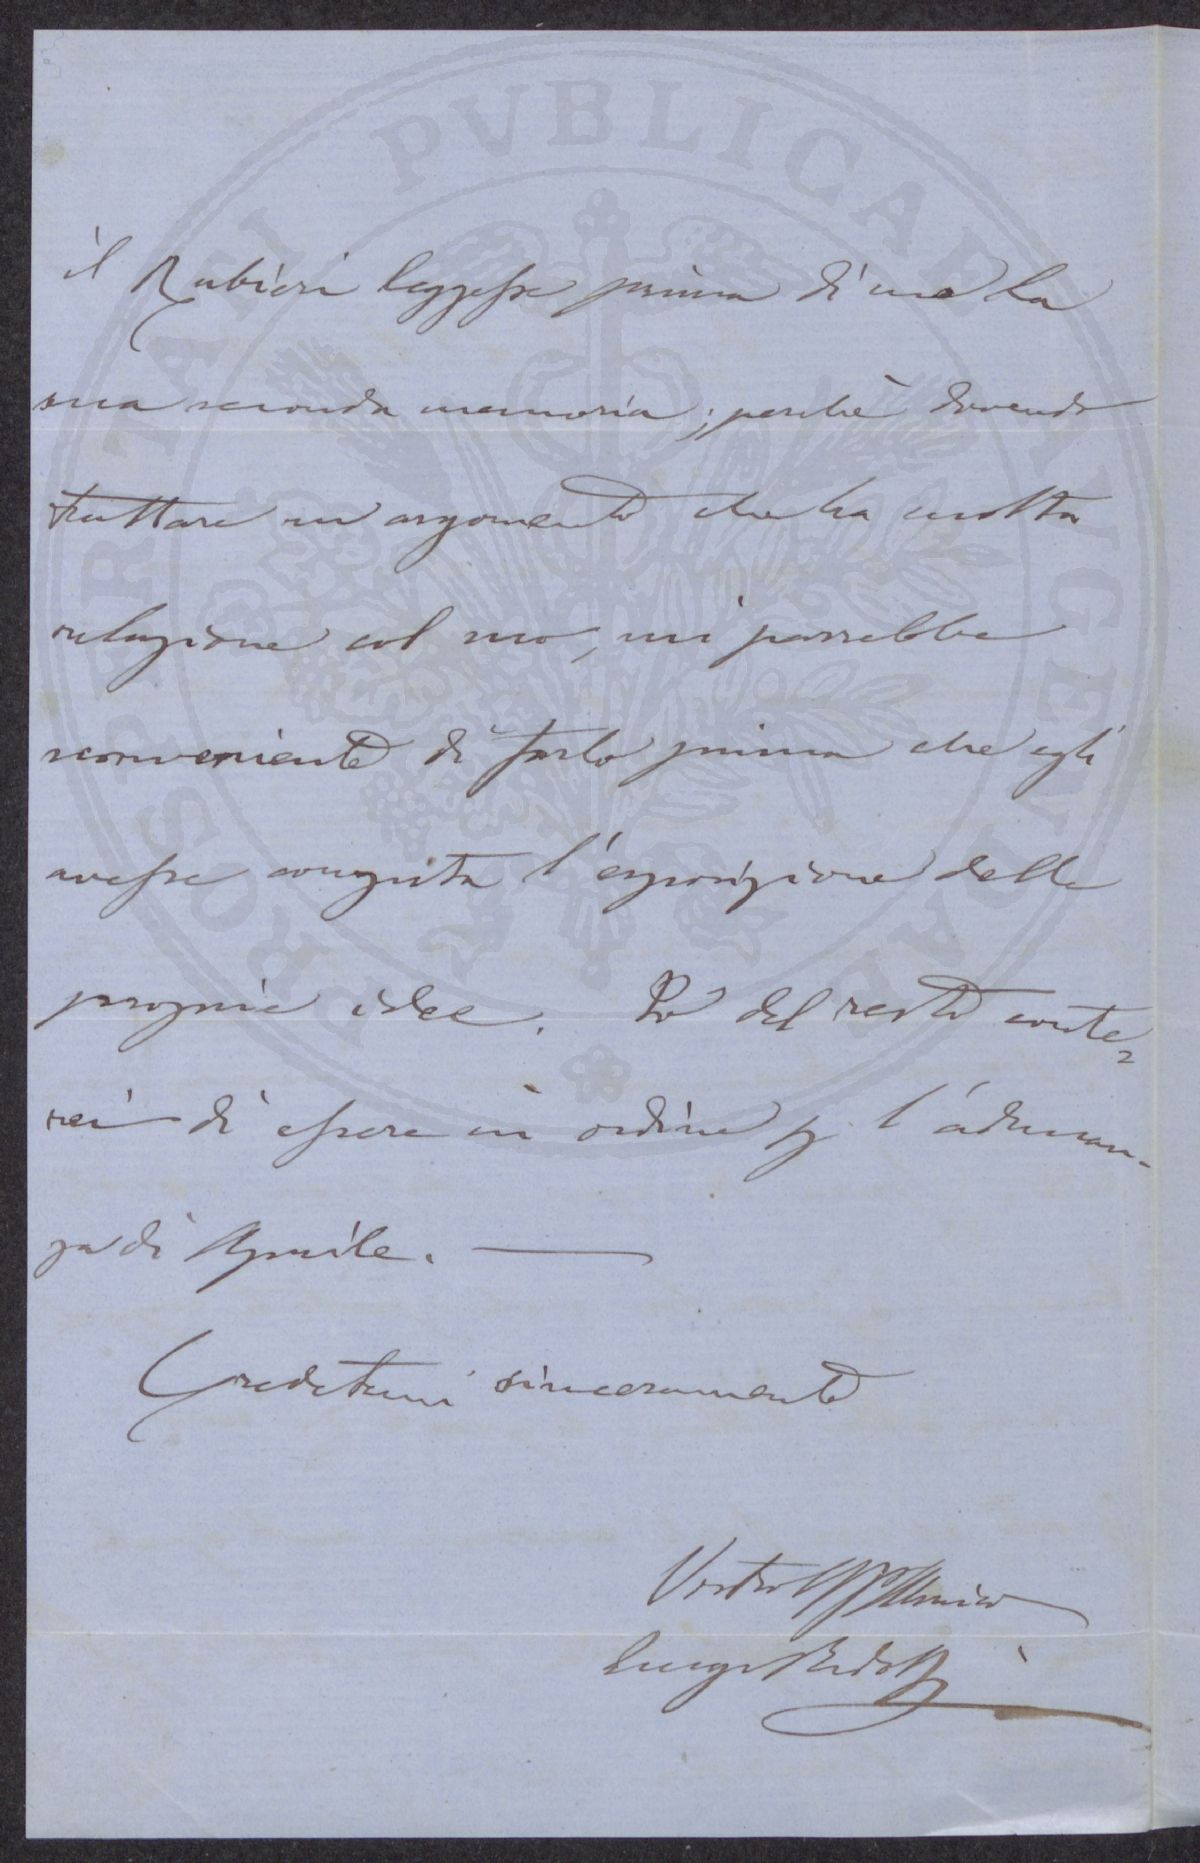 PROSPERITATI PVBLICAE AVGENDAE
il Rubieri leggesse prima di me la
sua seconda memoria; perchè dovendo
trattare un argomento che ha molta
relazione col mio, mi parrebbe
sconveniente di farlo prima che egli
avesse compita l'esposizione delle
proprie idee. Io del resto conte-
rei di essere in ordine p. l'adunan-
za di Aprile.
Credetemi sinceramente
Vostro Aff Amico
Luigi Ridolfi